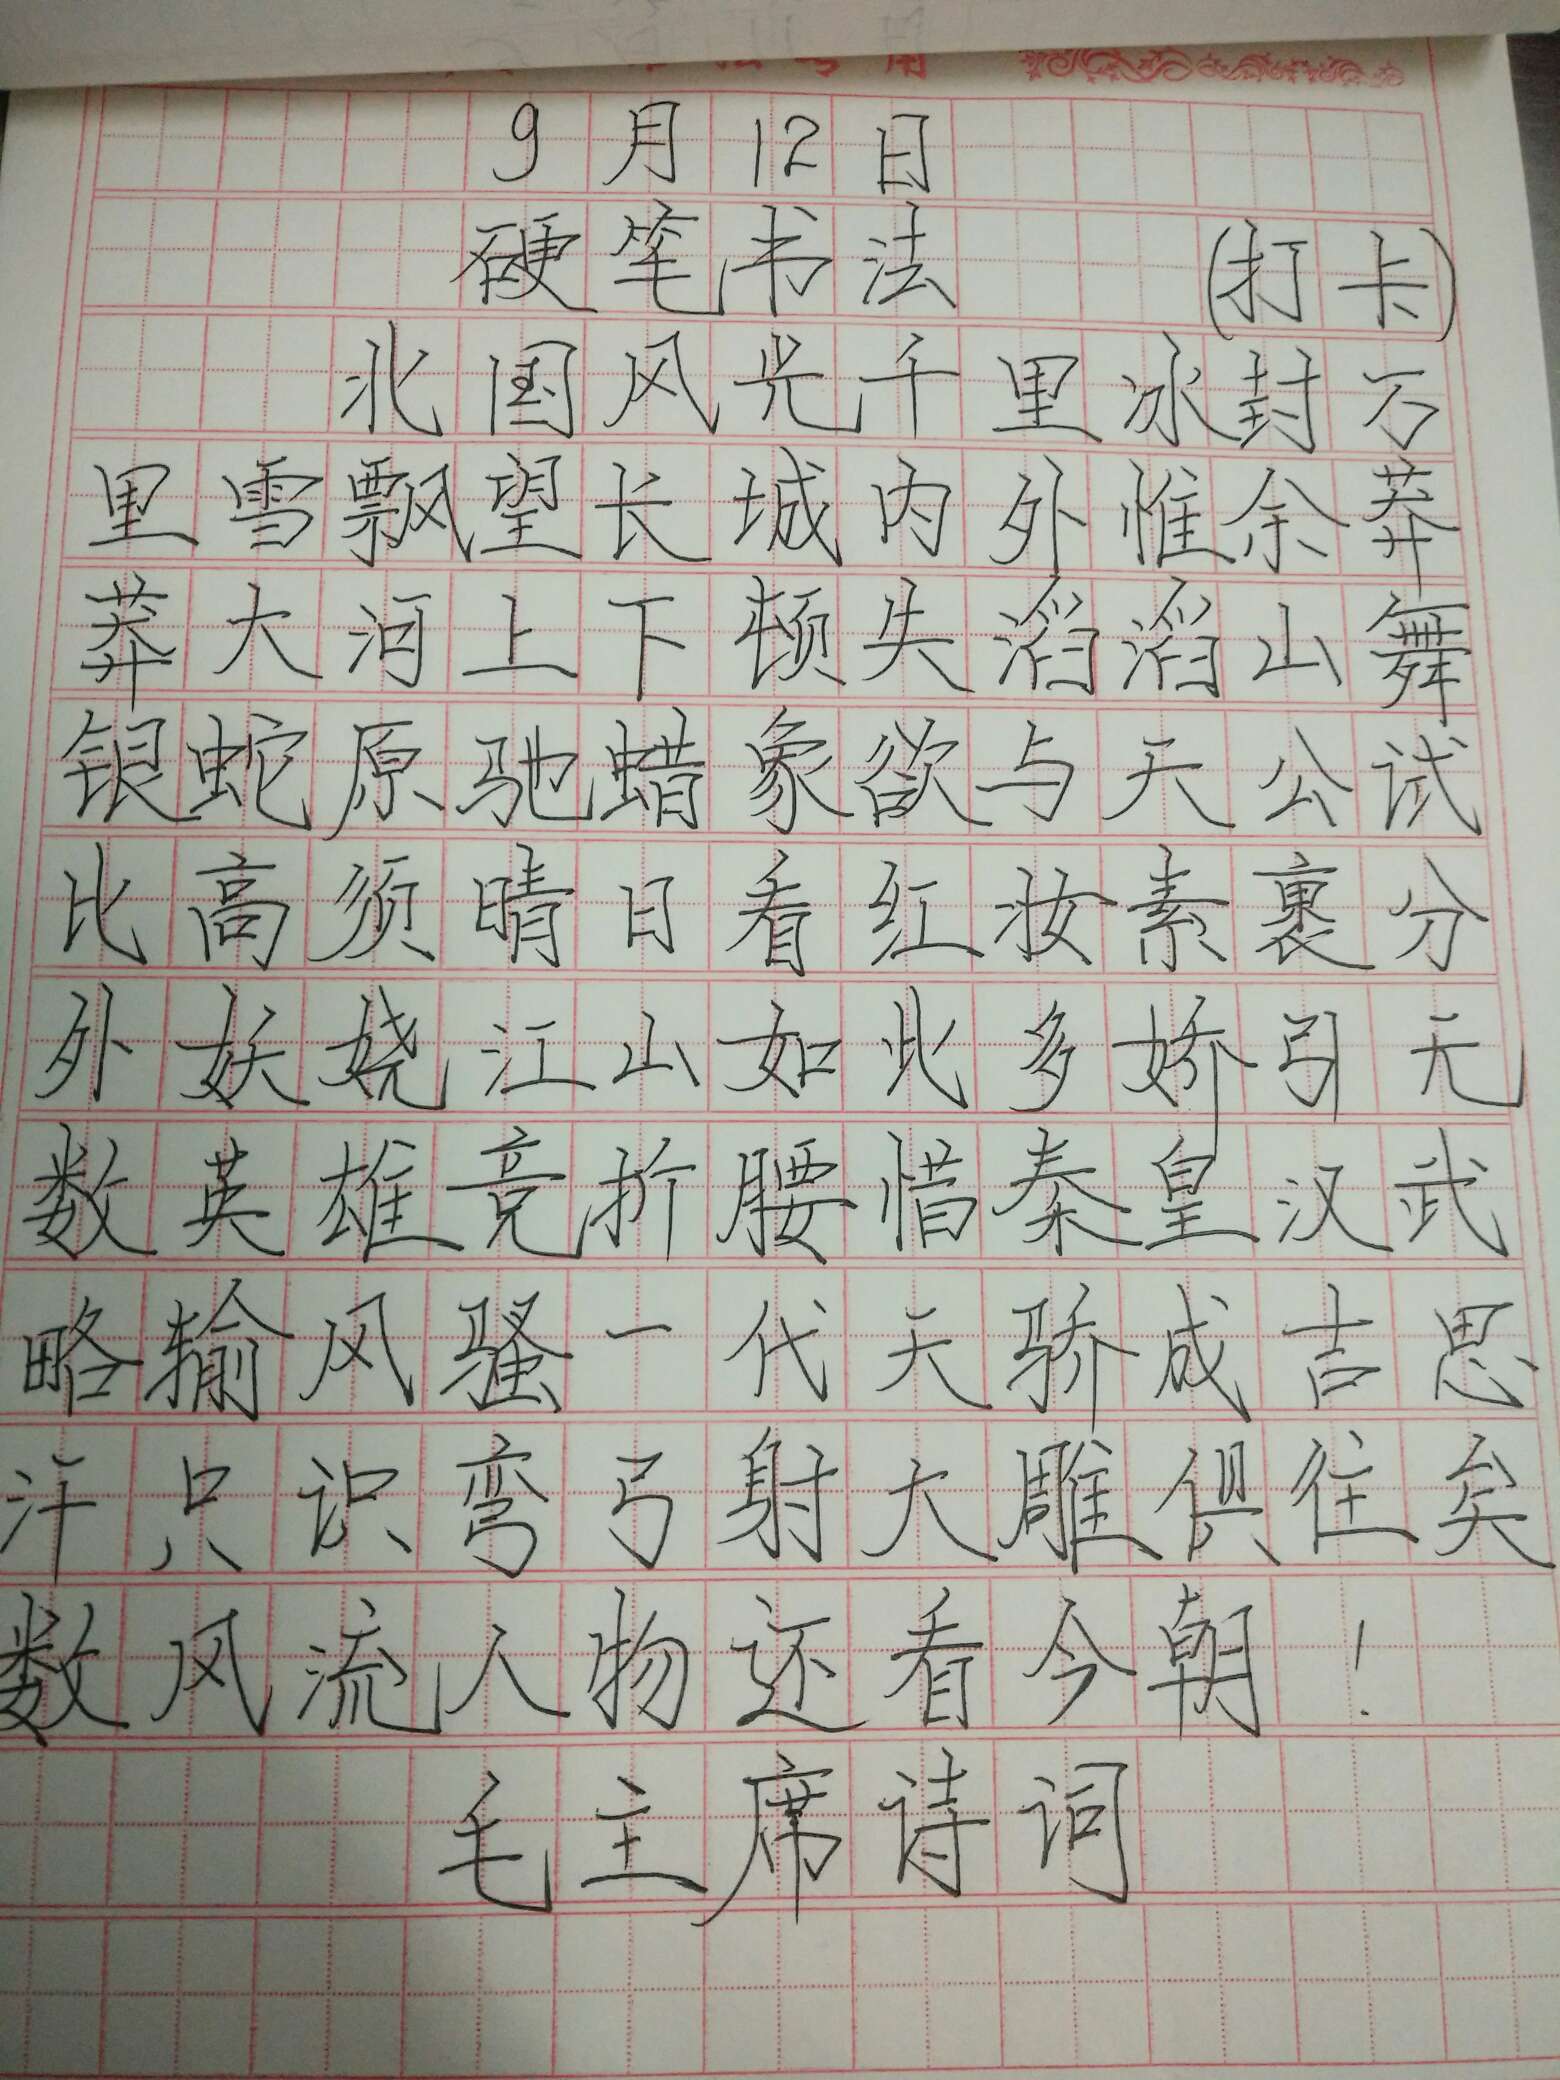 9月12日
硬笔书法 (打卡)
北国风光千里冰封万
里雪飘望长城内外惟余莽
莽大河上下顿失滔滔山舞
银蛇原驰蜡象欲与天公试
比高须晴日看红妆素裹分
外妖娆江山如此多娇引无
数英雄竞折腰惜秦皇汉武
略输风骚一代天骄成吉思
汗只识弯弓射大雕俱往矣
数风流人物还看今朝!
毛主席诗词